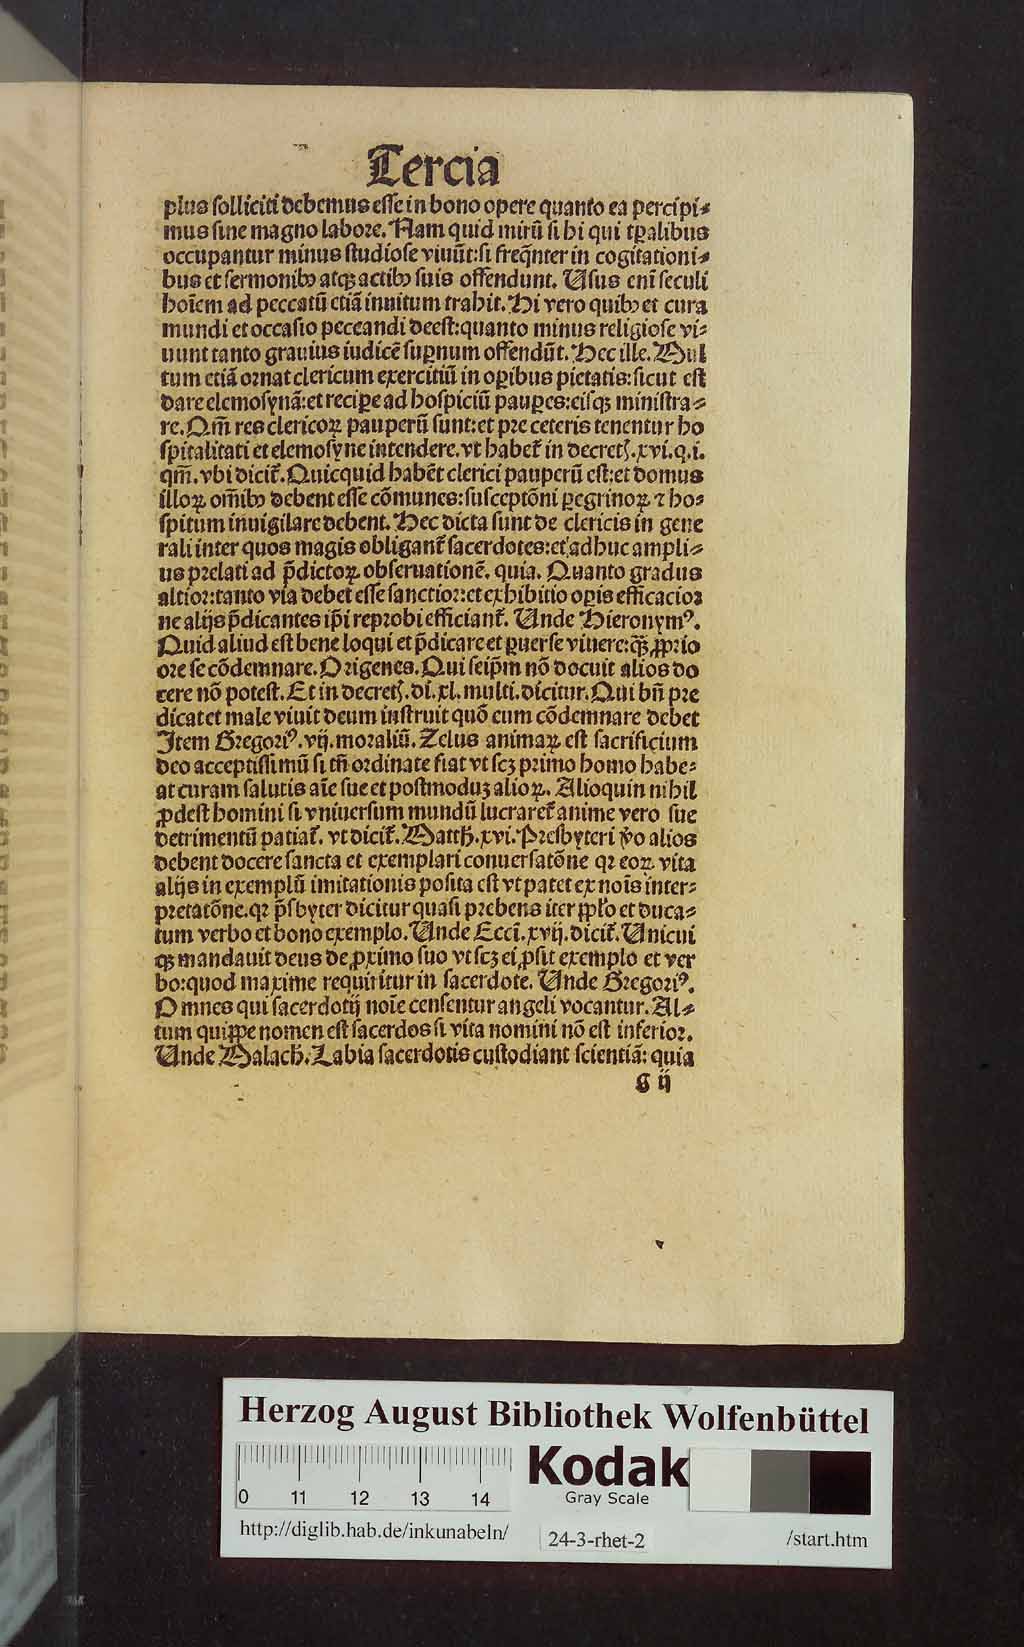 Tercia
plus solliciti debemus esse in bono opere quanto ea percipi⸗
mus sine magno labore. Nam quid mirū si hi qui tꝑalibus
occupantur minus studiose viuūt:si freq̄nter in cogitationi⸗
bus et sermonibꝰ atqꝫ actibꝰ suis offendunt. Usus eni seculi
hoīem ad peccatū etiā inuitum trahit. Hi vero quibꝰ et cura
mundi et occasio peccandi deest:quanto minus religiose vi⸗
uunt tanto grauius iudicē suꝑnum offendūt. Hec ille. Mul
tum etiā ornat clericum exercitiū in oꝑibus pietatis:sicut est
dare elemosynā:et reciꝑe ad hospiciū pauꝑes:eisqꝫ ministra⸗
re. Qm̄ res clericoꝝ pauperū sunt:et pre ceteris tenentur ho
spitalitati et elemosyne intendere. vt habet̄ in decret͛. xvi. q. i.
qm̄. vbi dicit̄. Quicquid habēt clerici pauperū est:et domus
illoꝝ om̄ibꝰ debent esse cōmunes:susceptōni ꝑegrinoꝝ ⁊ ho⸗
spitum inuigilare debent. Hec dicta sunt de clericis in gene
rali inter quos magis obligant̄ sacerdotes:et adhuc ampli⸗
us prelati ad p̄dictoꝝ obseruationē. quia. Quanto gradus
altior:tanto via debet esse sanctior:et exhibitio oꝑis efficacior
ne alijs p̄dicantes ip̄i reprobi efficiant̄. Unde Hieronymꝰ.
Quid aliud est bene loqui et p̄dicare et ꝑuerse viuere:qꝫ̄ ꝓprio
ore se cōdemnare. Origenes. Qui seip̄m nō docuit alios do
cere nō potest. Et in decret͛. di. xl. multi. dicitur. Qui bn̄ pre
dicat et male viuit deum instruit quō eum cōdemnare debet
Item Gregoriꝰ. vij. moraliū. Zelus animaꝝ est sacrificium
deo acceptissimū si tn̄ ordinate fiat vt scꝫ primo homo habe⸗
at curam salutis aīe sue et postmoduꝫ alioꝝ. Alioquin nihil
ꝓdest homini si vniuersum mundū lucraret̄ anime vero sue
detrimentū patiat̄. vt dicit̄. Matth̄. xvi. Presbyteri v̄o alios
debent docere sancta et exemplari conuersatōne qꝛ eoꝝ vita
alijs in exemplū imitationis posita est vt patet ex noīs inter⸗
pretatōne. qꝛ p̄sbyter dicitur quasi prebens iter ppl̄o et duca⸗
tum verbo et bono exemplo. Unde Ecci̅. xvij. dicit̄. Unicui
qꝫ mandauit deus de ꝓximo suo vt scꝫ ei ꝓsit exemplo et ver
bo:quod maxime requiritur in sacerdote. Unde Gregoriꝰ.
Omnes qui sacerdotij noīe censentur angeli vocantur. Al⸗
tum quippe nomen est sacerdos si vita nomini nō est inferior.
Unde Malach̄. Labia sacerdotis custodiant scientiā: quia
g ij
Herzog August Bibliothek Wolfenbüttel
0 11 12 13 14
Kodak
Gray Scale
http://diglib.hab.de/inkunabeln/ 24-3-rhet-2 /start.htm